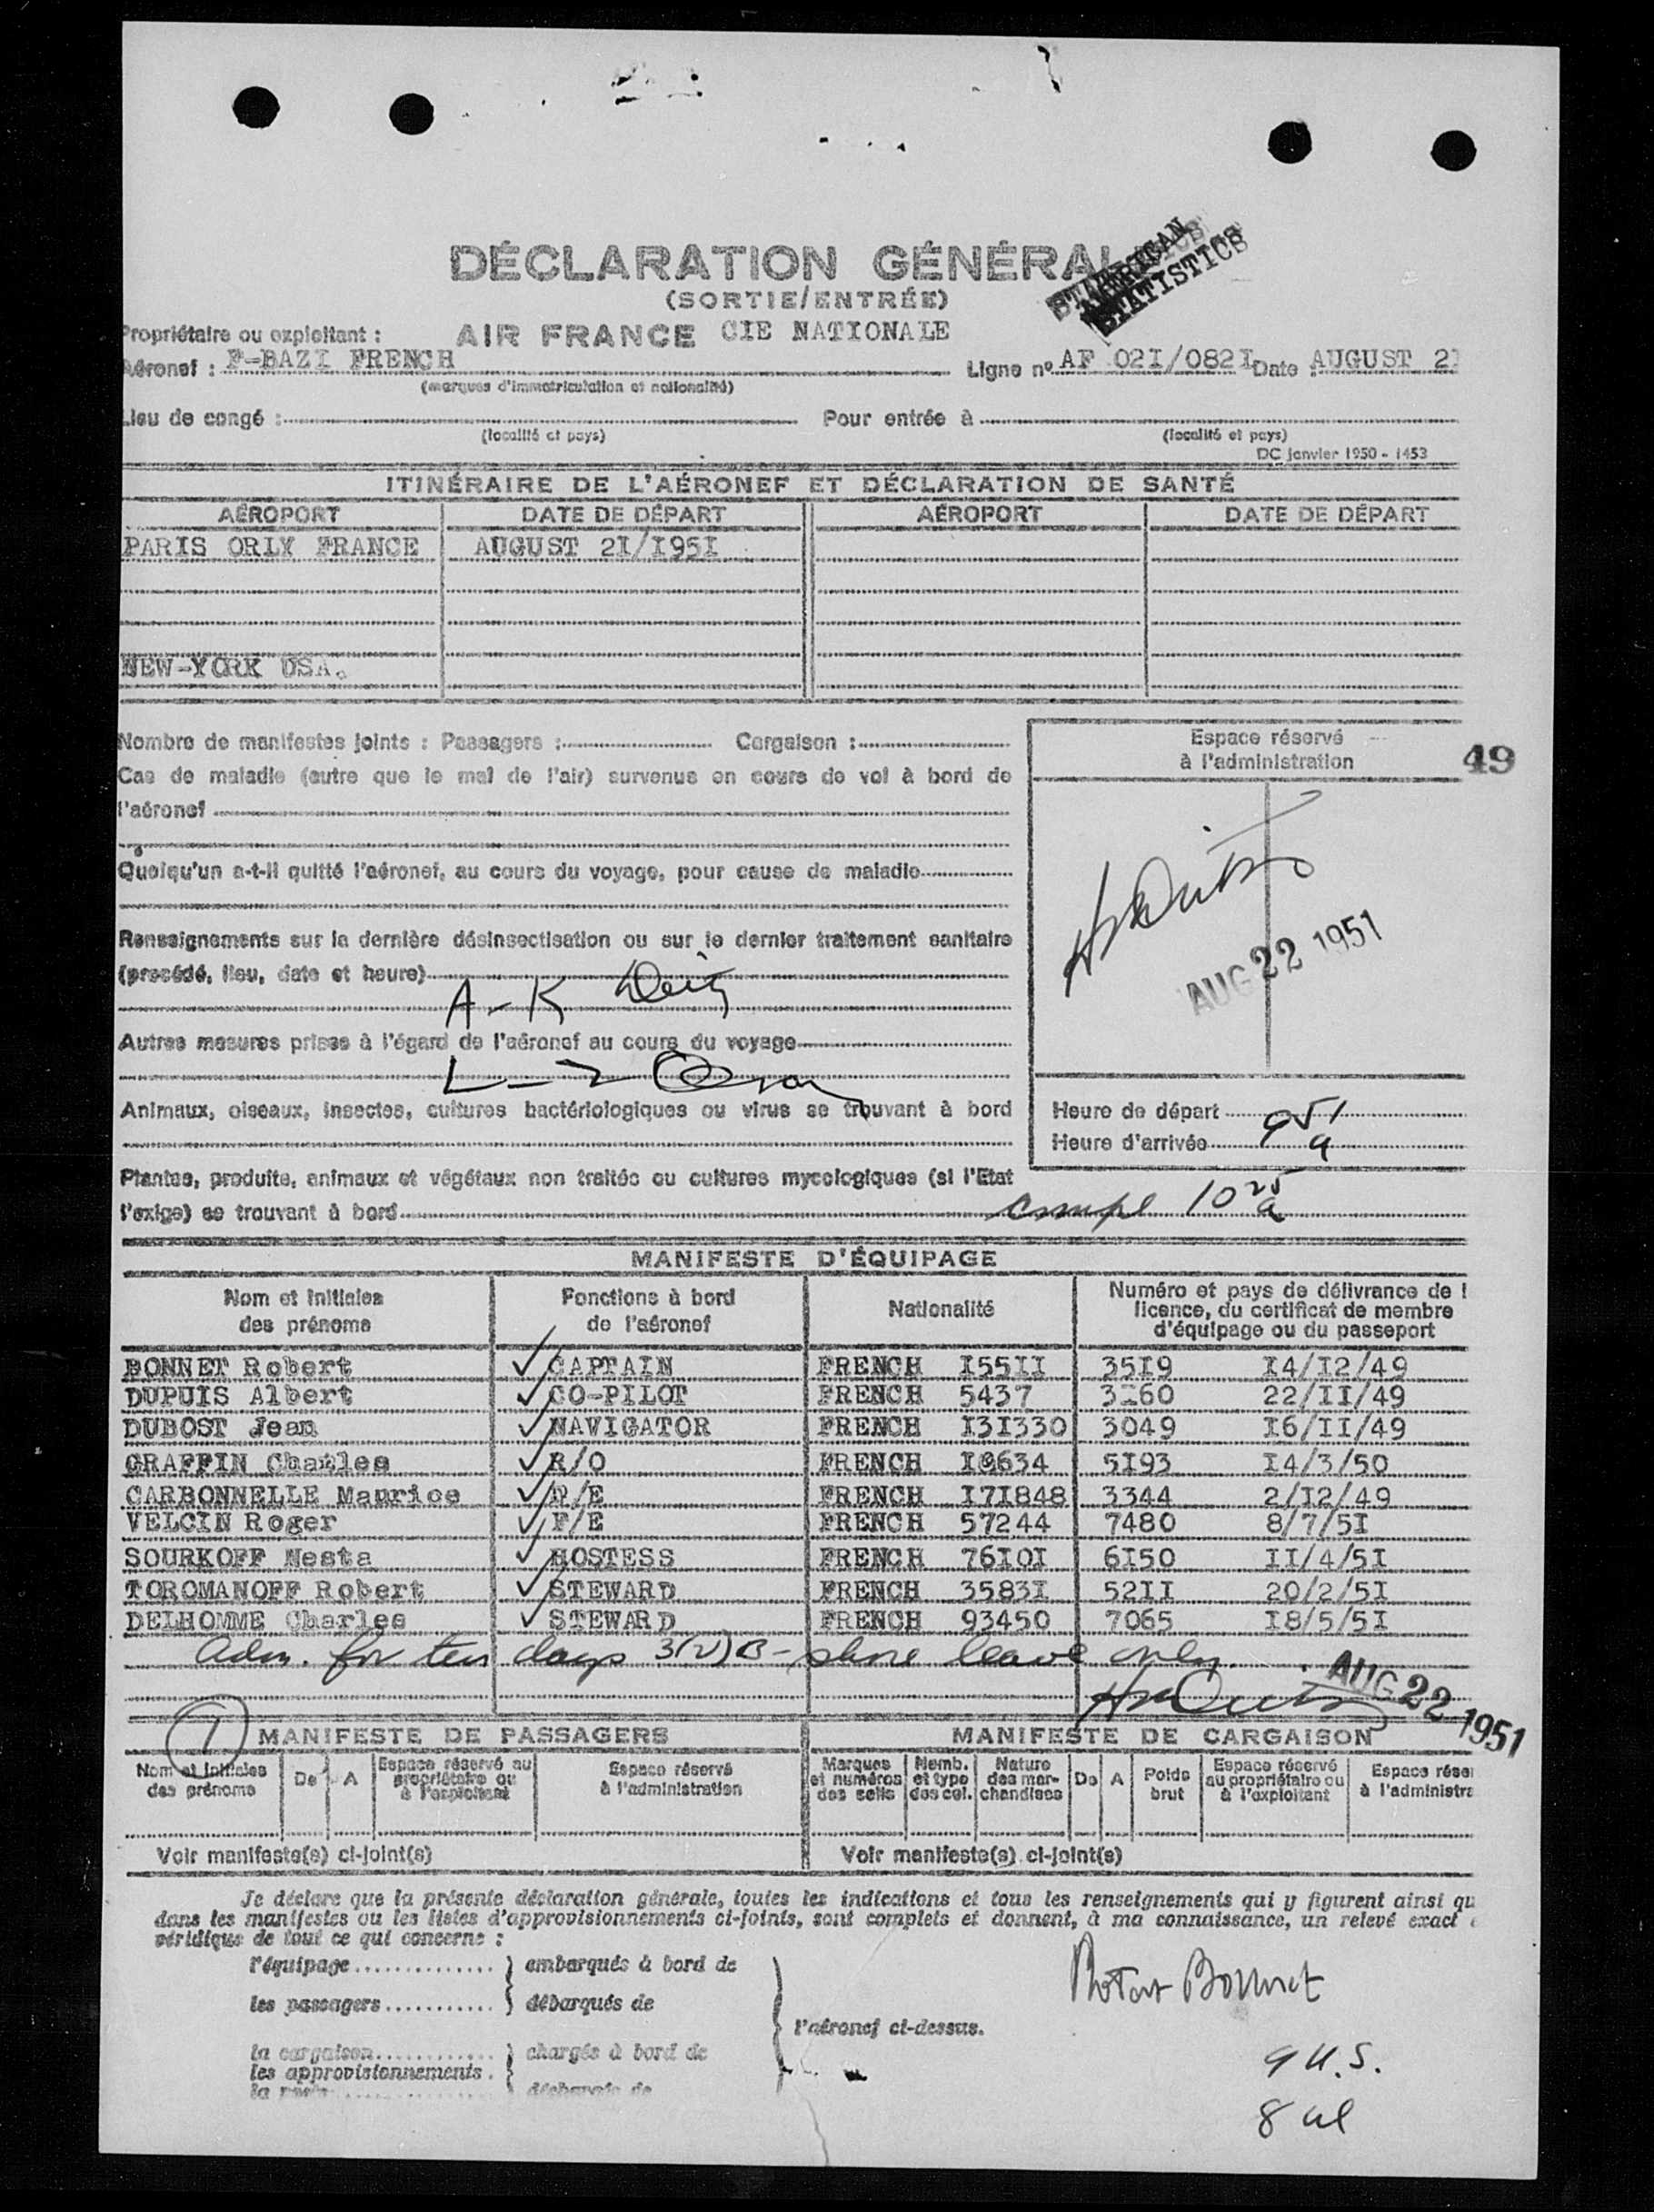 DÉCLARATION GÉNÉRAL
AMERICAN
STATISTICS
(SORTIE/ENTRÉE)
Propriétaire ou exploitant : AIR FRANCE CIE NATIONALE
Aéronef : F-BAZI FRENCH Ligne nº AF 02I/082I Date : AUGUST 2I
(marques d'immatriculation et nationalité)
Lieu de congé : Pour entrée à
(localité et pays) (localité et pays)
DC janvier 1950 - 1453
ITINÉRAIRE DE L'AÉRONEF ET DÉCLARATION DE SANTÉ
AÉROPORT DATE DE DÉPART AÉROPORT DATE DE DÉPART
PARIS ORLY FRANCE AUGUST 2I/I95I
NEW-YORK USA.
Nombre de manifestes joints : Passagers : Cargaison :
Espace réservé
à l'administration
49
Cas de maladie (autre que le mal de l'air) survenus en cours de vol à bord de
l'aéronef
Quelqu'un a-t-il quitté l'aéronef, au cours du voyage, pour cause de maladie
Renseignements sur la dernière désinsectisation ou sur le dernier traitement sanitaire
(procédé, lieu, date et heure)
AUG 22 1951
A-K
Autres mesures prises à l'égard de l'aéronef au cours du voyage
Animaux, oiseaux, insectes, cultures bactériologiques ou virus se trouvant à bord
Heure de départ
Heure d'arrivée 9 51 a
Plantes, produits, animaux et végétaux non traités ou cultures mycologiques (si l'Etat
l'exige) se trouvant à bord compl 10 25 a
MANIFESTE D'ÉQUIPAGE
Nom et initiales des prénoms Fonctions à bord de l'aéronef Nationalité Numéro et pays de délivrance de l
licence, du certificat de membre
d'équipage ou du passeport
BONNET Robert ✓ CAPTAIN FRENCH I55II 35I9 I4/I2/49
DUPUIS Albert ✓ CO-PILOT FRENCH 5437 3I60 22/II/49
DUBOST Jean ✓ NAVIGATOR FRENCH I3I330 3049 I6/II/49
GRAFFIN Charles ✓ R/O FRENCH 5I93 I4/3/50
CARBONNELLE Maurice ✓ FRENCH I7I848 3344 2/I2/49
VELCIN Roger ✓ F/E FRENCH 57244 7480 8/7/5I
SOURKOFF Nesta ✓ HOSTESS FRENCH 76I0I 6I50 II/4/5I
TOROMANOFF Robert ✓ STEWARD FRENCH 3583I 52II 20/2/5I
DELHOMME Charles ✓ STEWARD FRENCH 93450 7065 I8/5/5I
Adm. for ten days 3(2)B - shore leave only.
AUG 22 1951
1
MANIFESTE DE PASSAGERS MANIFESTE DE CARGAISON
Nom et initiales des prénoms De A Espace réservé au propriétaire ou à l'exploitant Espace réservé à l'administration Marques et numéros des colis Nomb. et type des col. Nature des marchandises De A Poids brut Espace réservé au propriétaire ou à l'exploitant Espace rése à l'administra
Voir manifeste(s) ci-joint(s) Voir manifeste(s) ci-joint(s)
Je déclare que la présente déclaration générale, toutes les indications et tous les renseignements qui y figurent ainsi qu
dans les manifestes ou les listes d'approvisionnements ci-joints, sont complets et donnent, à ma connaissance, un relevé exact e
véridique de tout ce qui concerne :
l'équipage.............. embarqués à bord de
les passagers........... débarqués de
l'aéronef ci-dessus.
la cargaison............ chargés à bord de
les approvisionnements .
la poste débarqués de
Robert Bonnet
9 U.S.
8 al